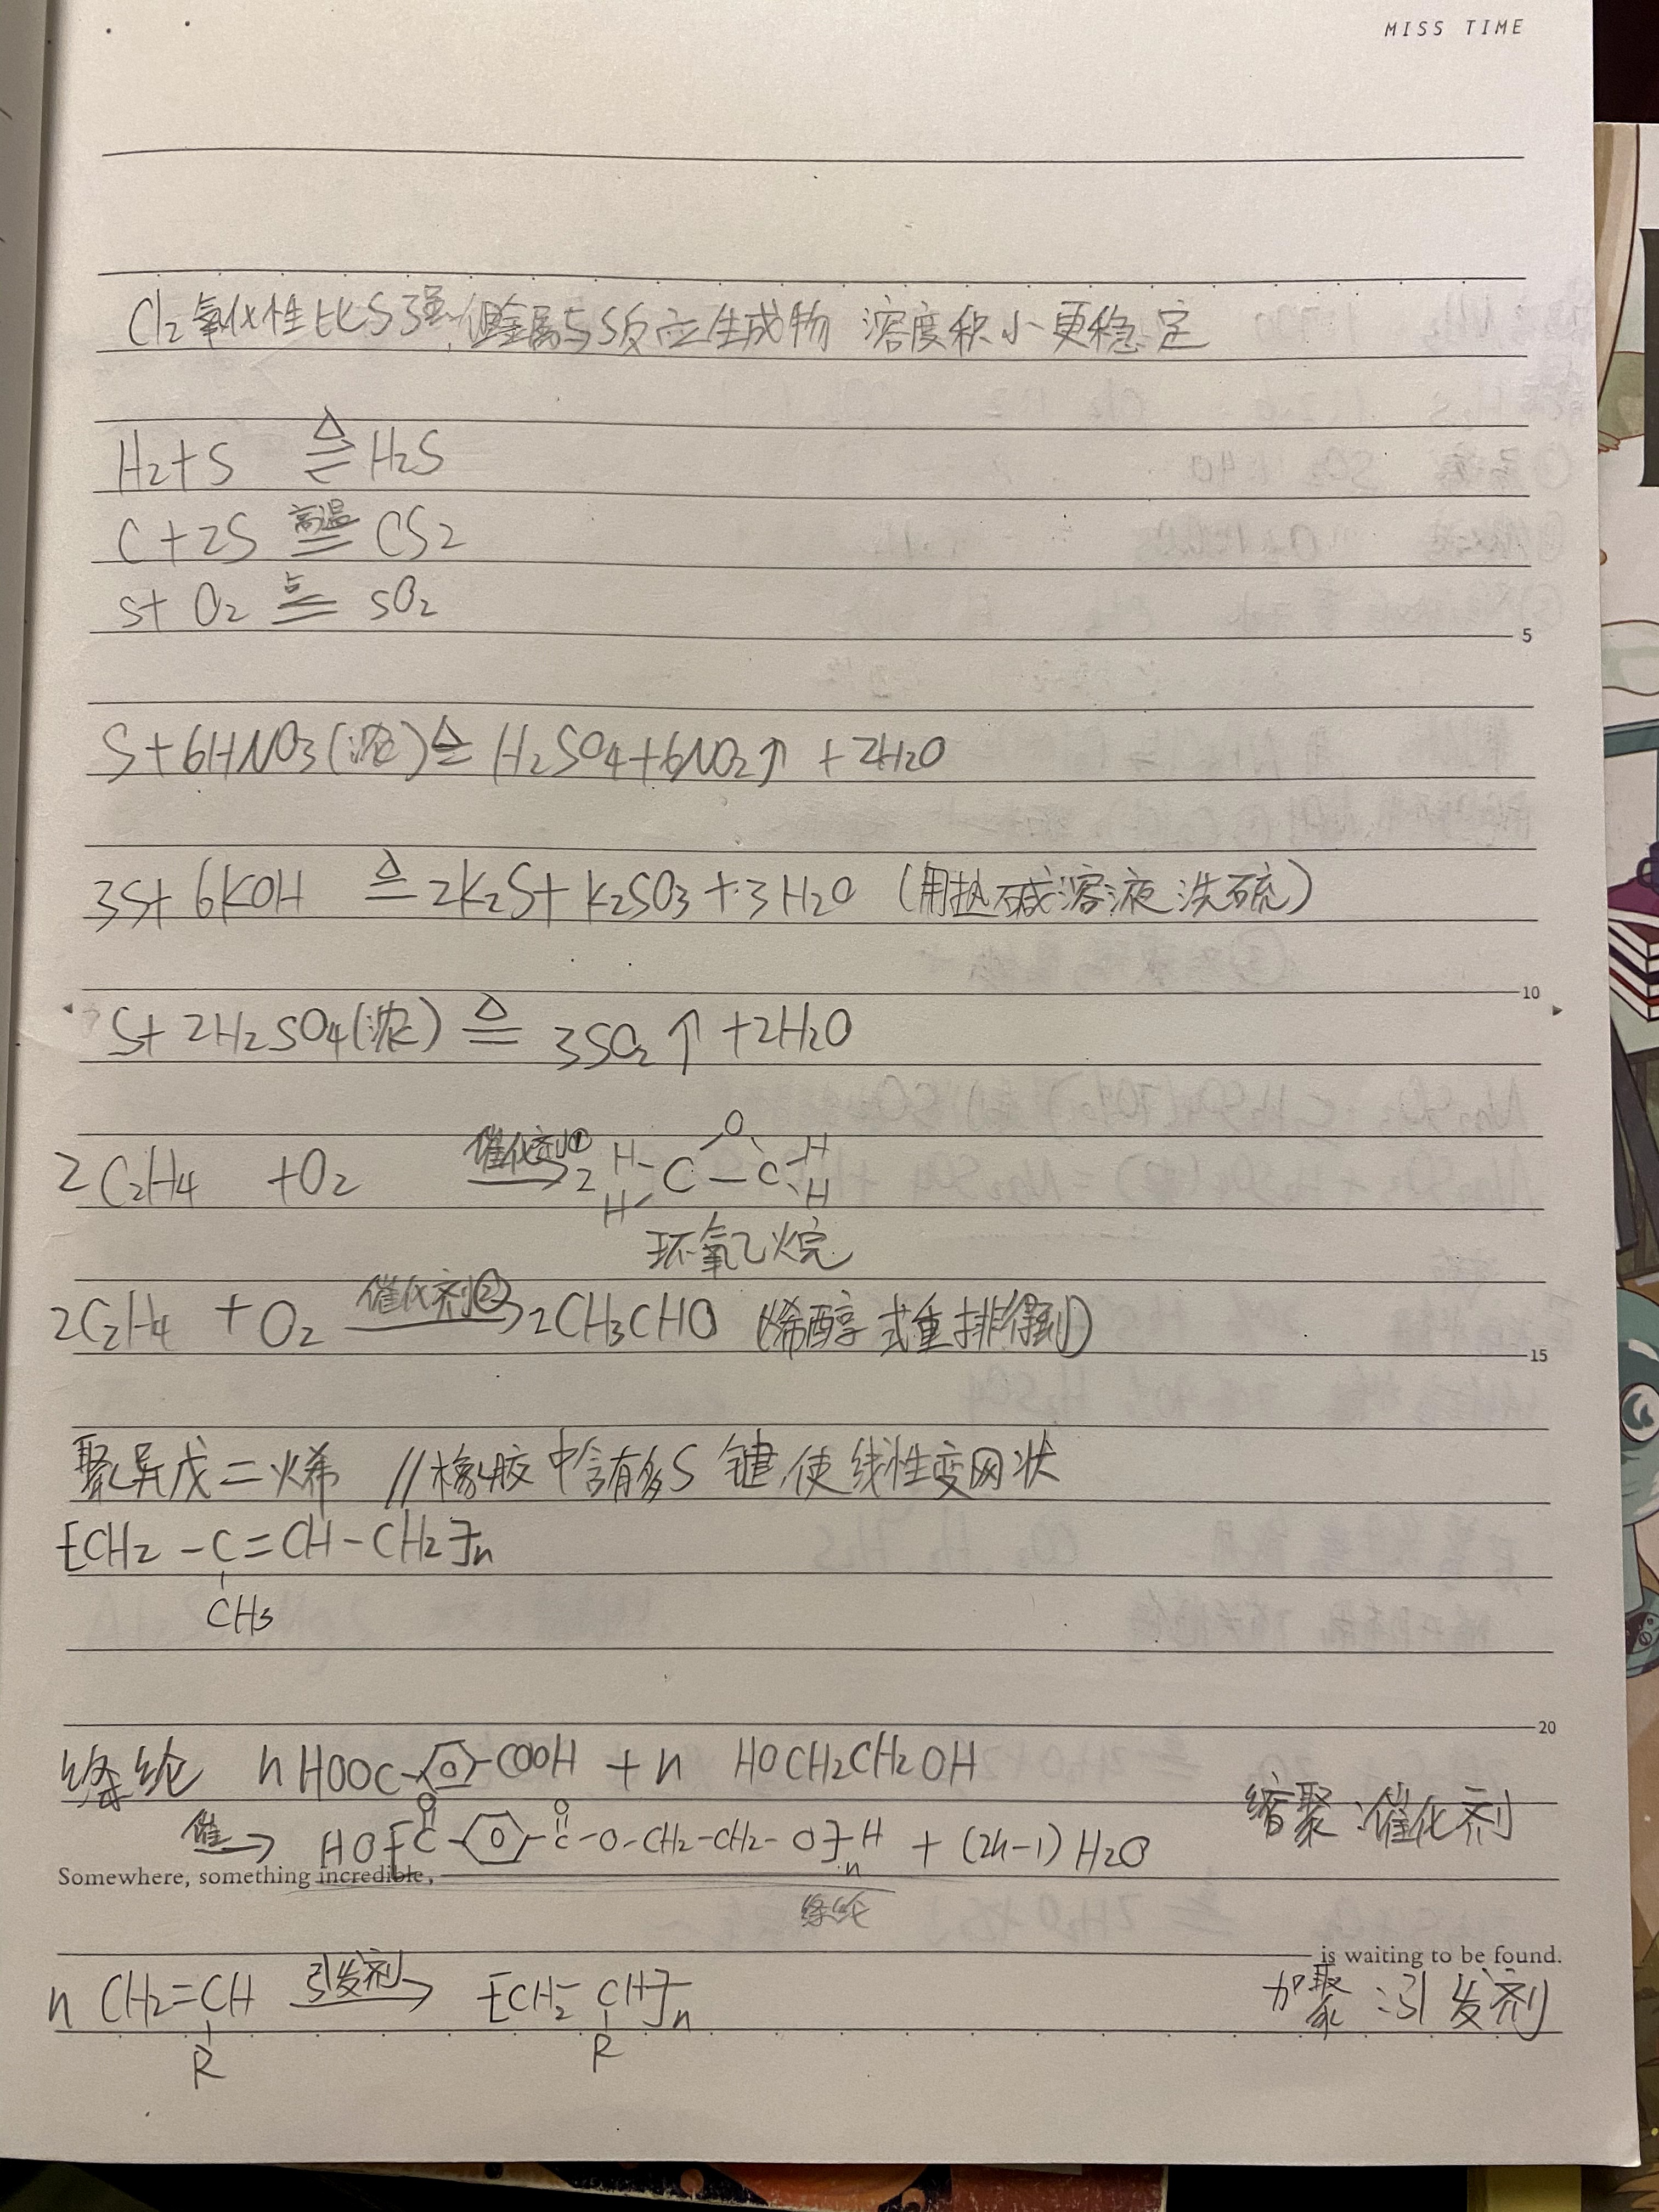 MISS TIME
Cl2氧化性比S强,但金属与S反应生成物 溶度积小更稳定
△
H2+S = H2S
高温
C+2S = CS2
点
S+ O2 = SO2
5
S+6HNO3(浓) △= H2SO4+6NO2↑ +2H2O
3S+ 6KOH △= 2K2S+ K2SO3+3H2O (用热碱溶液洗硫)
10
S+ 2H2SO4(浓) △= 3SO2↑ +2H2O
催化剂① O
2C2H4 +O2 → 2 H-C-C-H
H H
环氧乙烷
催化剂②
2C2H4 +O2 → 2CH3CHO (烯醇式重排得到)
15
聚异戊二烯 //橡胶中含有多S键,使线性变网状
[CH2 -C=CH-CH2]n
CH3
20
涤纶 nHOOC-⌬-COOH +n HOCH2CH2OH
缩聚:催化剂
O O
催→ HO[C-⌬-C-O-CH2-CH2-O]n H + (2n-1) H2O
Somewhere, something incredible,
涤纶
is waiting to be found.
n CH2=CH 引发剂→ [CH2-CH]n 加聚:引发剂
R R